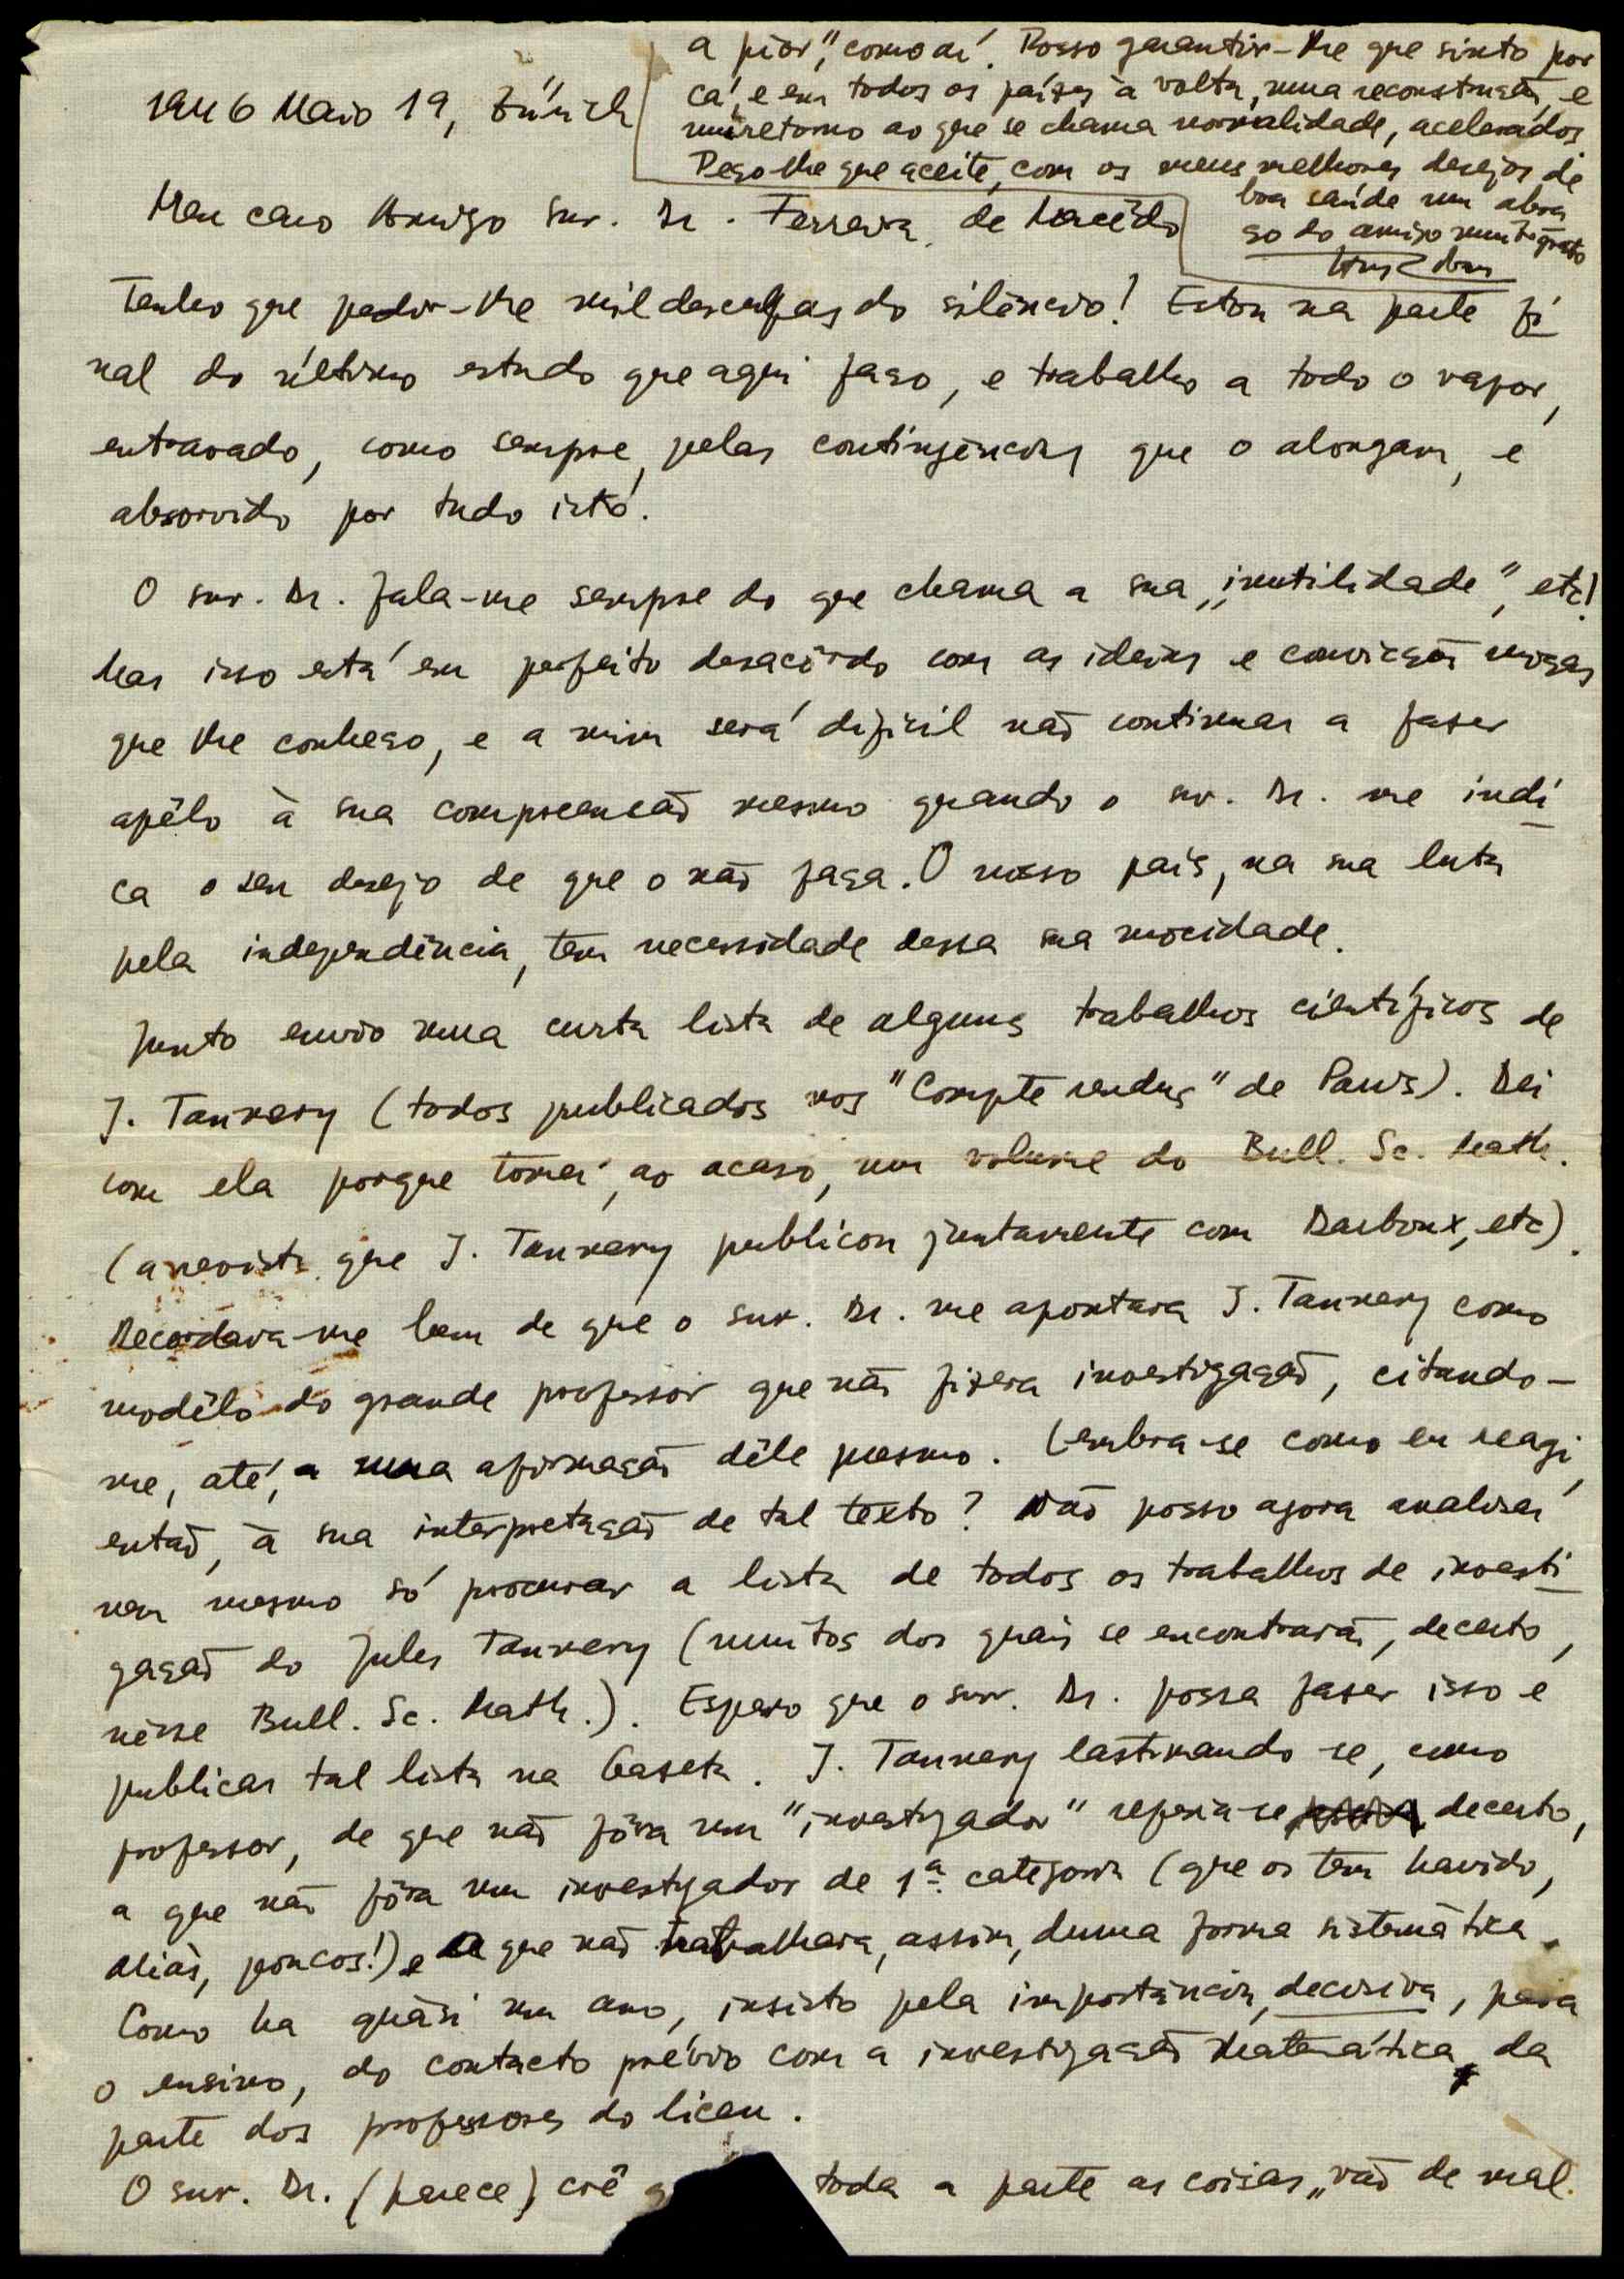 1946 Maio 19, Zürich
Meu caro Amigo snr. Dr. Ferreira de Macêdo
Tenho que pedir-lhe mil desculpas do silêncio! Estou na parte fi
nal do último estudo que aqui faço, e trabalho a todo o vapor,
entravado, como sempre, pelas contingências que o alongam, e
absorvido por tudo isto.
O snr. Dr. fala-me sempre do que chama a sua „inutilidade”, etc!
Mas isso está em perfeito desacôrdo com as ideias e convicção moças
que lhe conheço, e a mim será dificil não continuar a fazer
apêlo à sua compreensão mesmo quando o snr. Dr. me indi
ca o seu desejo de que o não faça. O nosso país, na sua luta
pela independência, tem necessidade dessa sua mocidade.
Junto envio uma curta lista de alguns trabalhos científicos de
J. Tannery (todos publicados nos "Compte rendus" de Paris). Dei
com ela porque tomei, ao acaso, um volume do Bull. Sc. Math.
(a revista que J. Tannery publicou juntamente com Darboux, etc).
Recordava-me bem de que o snr. Dr. me apontara J. Tannery como
modêlo do grande professor que não fizera investigação, citando-
me, até, a uma afirmação dêle mesmo. Lembra-se como eu reagi,
então, à sua interpretação de tal texto? Não posso agora analisar
nem mesmo só procurar a lista de todos os trabalhos de investi
gação do Jules Tannery (muitos dos quais se encontrarão, decerto,
nêsse Bull. Sc. Math.). Espero que o snr. Dr. possa fazer isso e
publicar tal lista na Gazeta. J. Tannery lastimando-se, como
professor, de que não fôra um "investigador" referia-se decerto,
a que não fôra um investigador de 1ª. categoria (que os tem havido,
aliás, poucos!) e a que não trabalhara, assim, duma forma sistemática.
Como ha quási um ano, insisto pela importância, decisiva, para
o ensino, do contacto prévio com a investigação Matemática, da
parte dos professores do liceu.
O snr. Dr. (parece) crê toda a parte as coisas „vão de mal
a pior”, como aí. Posso garantir-lhe que sinto por
cá, e em todos os países à volta, uma reconstrução, e
um retorno ao que se chama normalidade, acelerados
Peço-lhe que aceite, com os meus melhores desejos de
boa saúde um abra
ço do amigo muito grato